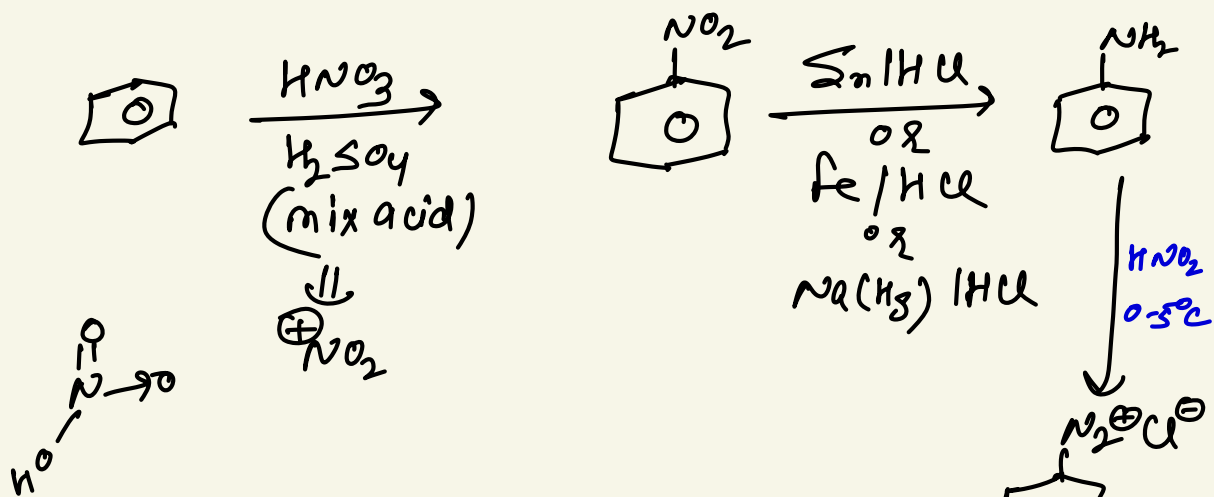 HNO3
H2SO4
(mix acid)
⊕NO2
O
N→O
HO
NO2
Sn/HCl
OR
Fe/HCl
OR
Na(Hg)/HCl
NH2
HNO2
0-5°C
N2⊕Cl⊖